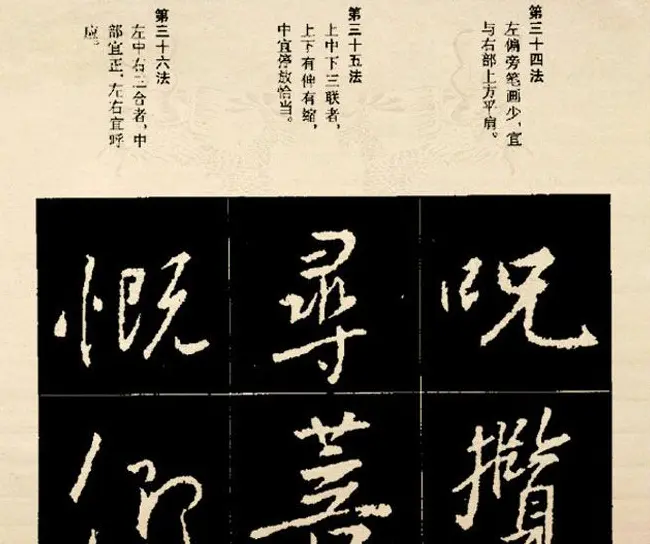 第三十四法
左偏旁笔画少，宜
与右部上方平肩。
第三十五法
上中下三联者，
上下有伸有缩，
中宜停放恰当。
第三十六法
左中右三合者，中
部宜正，左右宜呼
应。
咒 尋 慨
攬 菩 仰